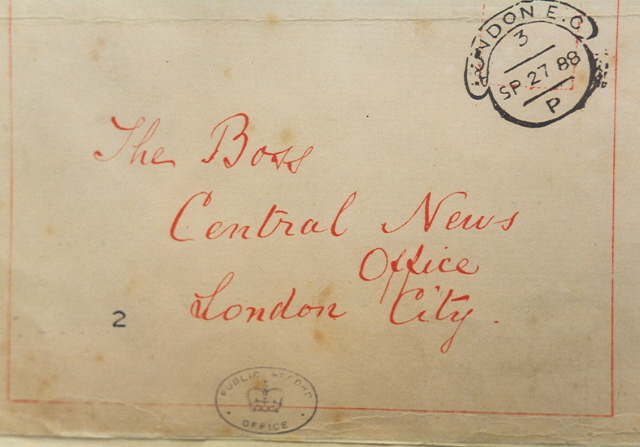 LONDON E.C
3
SP 27 88
P
The Boss
Central News
Office
London City.
2
PUBLIC RECORD
OFFICE